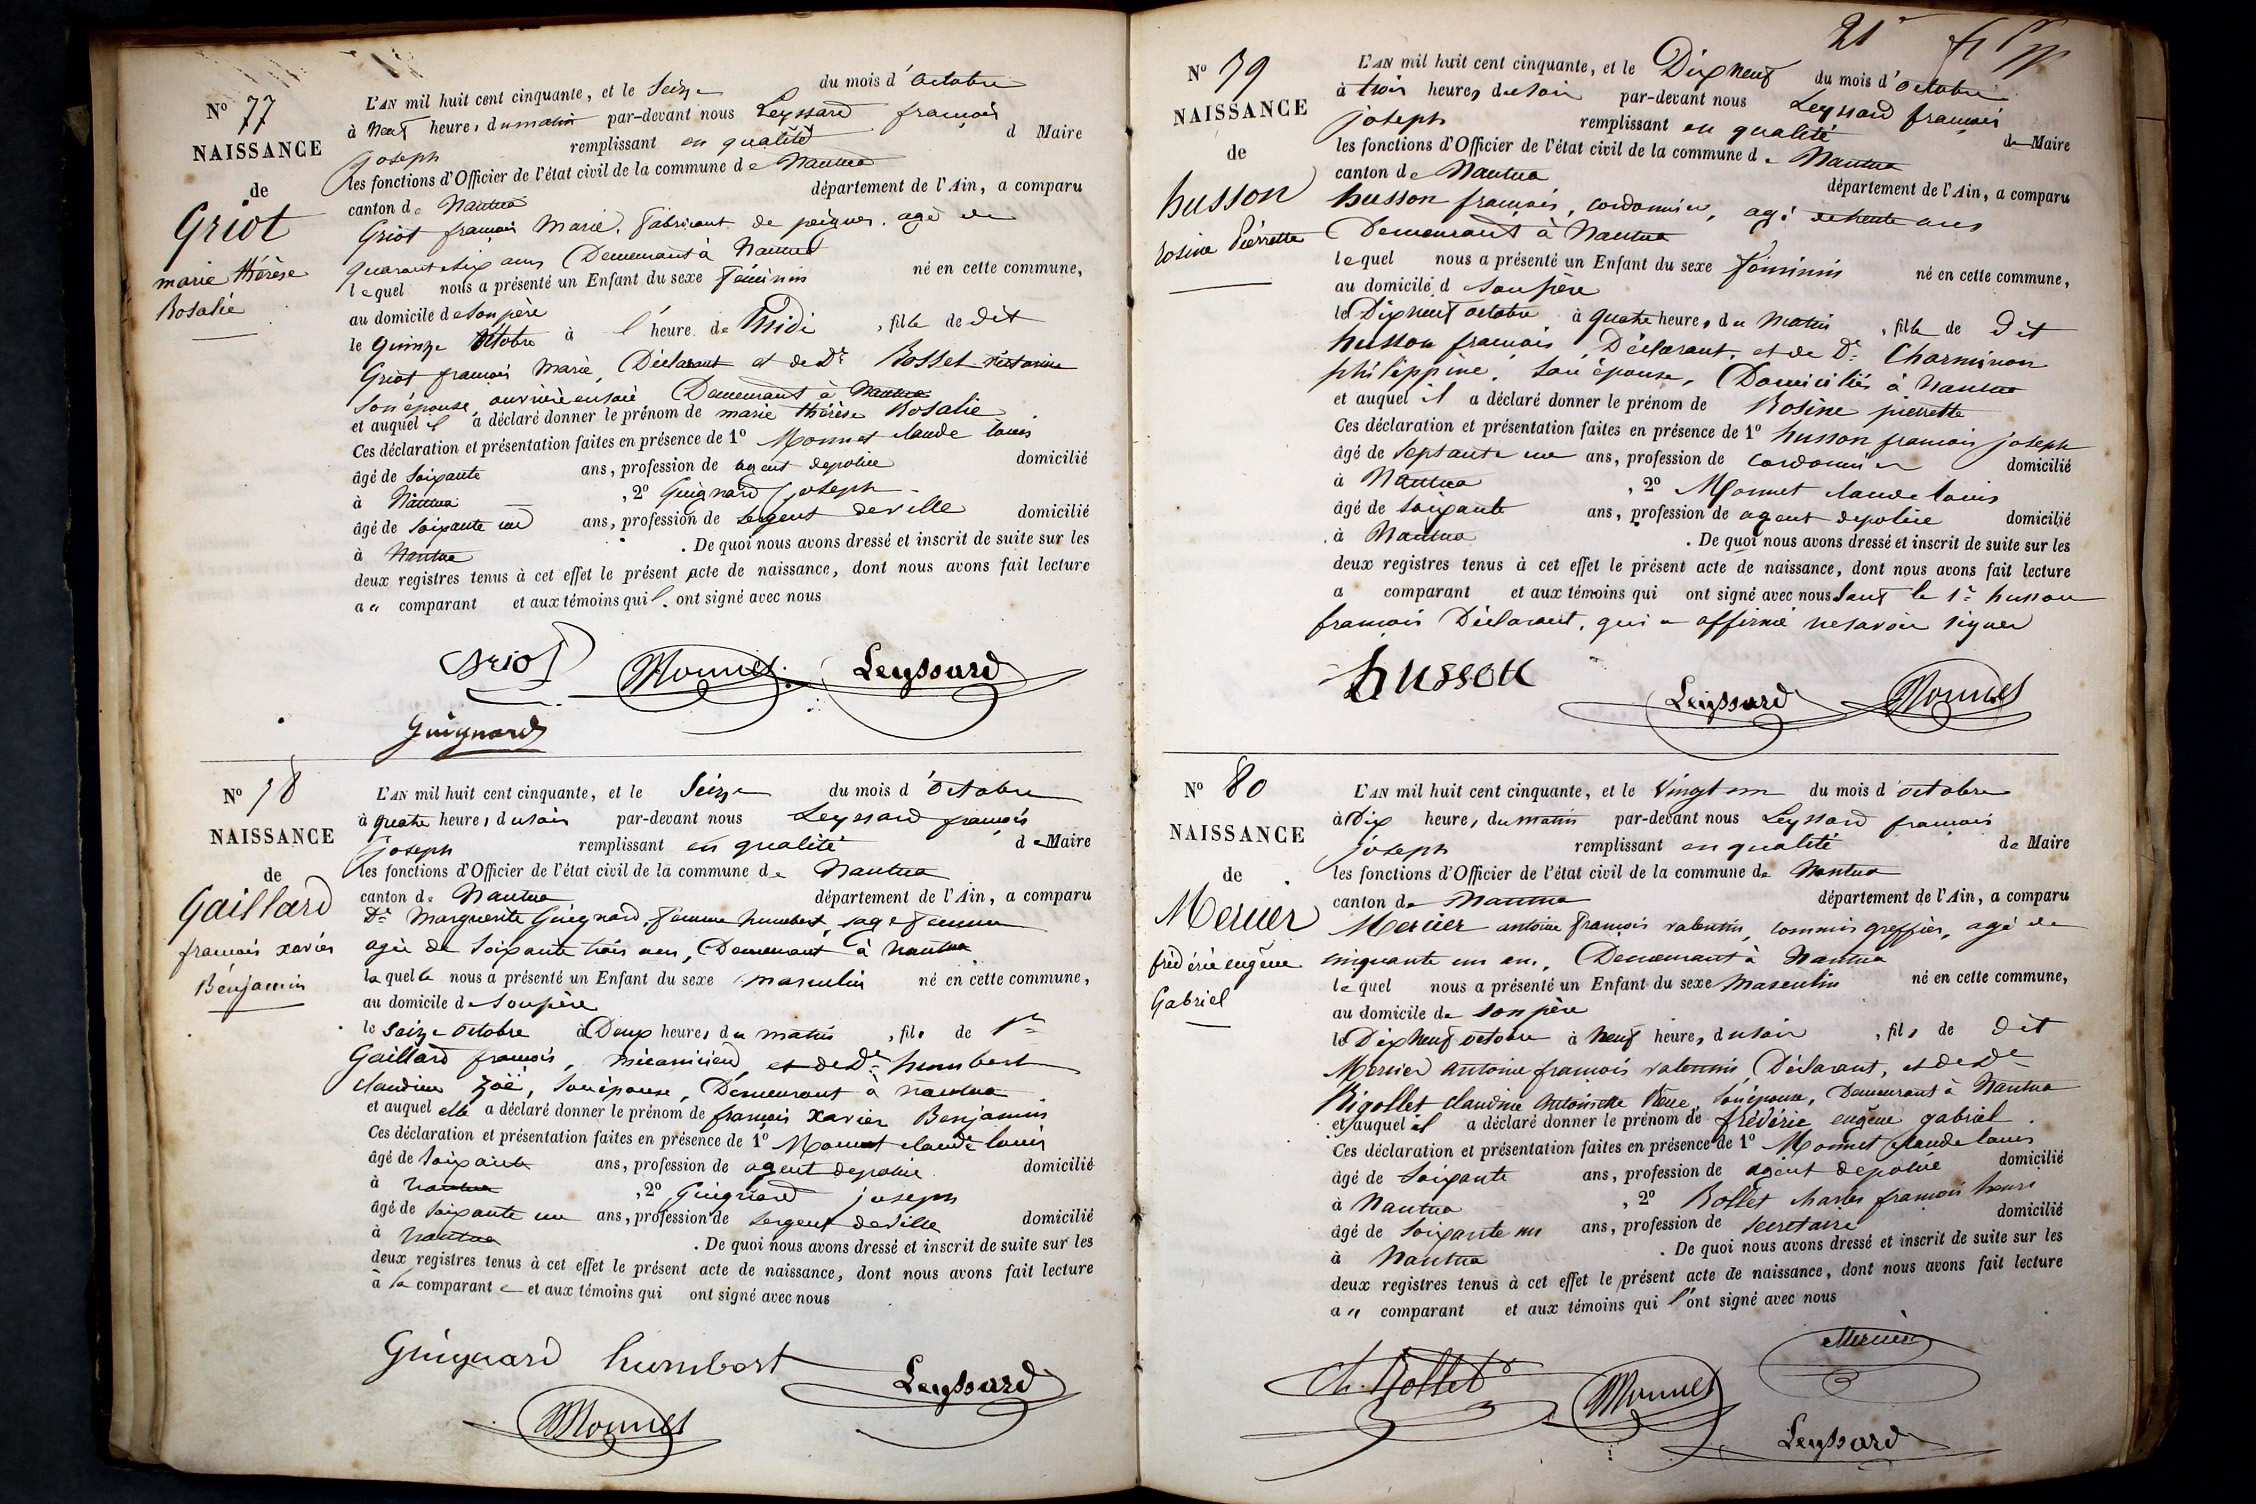 N° 77
NAISSANCE
de
Griot
marie thérèse
Rosalie
L'AN mil huit cent cinquante, et le Seize du mois d'octobre
à Neuf heures du matin par-devant nous Leyssard françois
joseph remplissant en qualité d Maire
les fonctions d'Officier de l'état civil de la commune de Nantua
canton de Nantua département de l'Ain, a comparu
Griot françois Marie, fabricant de peignes, agé de
quarante six ans Demeurant à Nantua
lequel nous a présenté un Enfant du sexe féminin né en cette commune,
au domicile de son père
le quinze octobre à l'heure de Midi, fille de dit
Griot françois Marie, Déclarant et de De Rosset
son épouse, ouvrière en soie Demeurant à Nantua
et auquel il a déclaré donner le prénom de marie thérèse Rosalie.
Ces déclaration et présentation faites en présence de 1° Monnet claude louis
âgé de soixante ans, profession de agent de police domicilié
à Nantua, 2° Guignard joseph
âgé de soixante un ans, profession de sergent de ville domicilié
à Nantua. De quoi nous avons dressé et inscrit de suite sur les
deux registres tenus à cet effet le présent acte de naissance, dont nous avons fait lecture
au comparant et aux témoins qui l'ont signé avec nous
Griot Monnet Leyssard
Guignard
N° 78
NAISSANCE
de
Gaillard
françois xavier
Benjamin
L'AN mil huit cent cinquante, et le Seize du mois d'octobre
à quatre heures du soir par-devant nous Leyssard françois
joseph remplissant en qualité de Maire
les fonctions d'Officier de l'état civil de la commune de Nantua
canton de Nantua département de l'Ain, a comparu
De Marguerite Guignard, femme humbert, sage femme
agée de soixante trois ans, Demeurant à Nantua
laquelle nous a présenté un Enfant du sexe masculin né en cette commune,
au domicile de son père
le seize octobre à Deux heures du matin, fils de Sr
Gaillard françois, mécanicien, et de De humbert
claudine Zoë, son épouse, Demeurant à Nantua
et auquel elle a déclaré donner le prénom de françois xavier Benjamin
Ces déclaration et présentation faites en présence de 1° Monnet claude louis
âgé de soixante ans, profession de agent de police domicilié
à Nantua, 2° Guignard joseph
âgé de soixante un ans, profession de sergent de ville domicilié
à Nantua. De quoi nous avons dressé et inscrit de suite sur les
deux registres tenus à cet effet le présent acte de naissance, dont nous avons fait lecture
à la comparante et aux témoins qui ont signé avec nous
Guignard humbert Leyssard
Monnet
21
N° 79
NAISSANCE
de
husson
rosine Pierrette
L'AN mil huit cent cinquante, et le Dix neuf du mois d'octobre
à trois heures du soir par-devant nous Leyssard françois
joseph remplissant en qualité de Maire
les fonctions d'Officier de l'état civil de la commune de Nantua
canton de Nantua département de l'Ain, a comparu
husson françois, cordonnier, agé de trente ans
Demeurant à Nantua
lequel nous a présenté un Enfant du sexe féminin né en cette commune,
au domicile d son père
le Dix neuf octobre à quatre heures du matin, fille de dit
husson françois, Déclarant, et de De Charminon
philippine, son épouse, Domiciliés à Nantua
et auquel il a déclaré donner le prénom de Rosine pierrette
Ces déclaration et présentation faites en présence de 1° husson françois joseph
âgé de septante un ans, profession de cordonnier domicilié
à Nantua, 2° Monnet claude louis
âgé de soixante ans, profession de agent de police domicilié
à Nantua. De quoi nous avons dressé et inscrit de suite sur les
deux registres tenus à cet effet le présent acte de naissance, dont nous avons fait lecture
a comparant et aux témoins qui ont signé avec nous sauf le Sr husson
françois Déclarant, qui a affirmé ne savoir signer
husson Leyssard Monnet
N° 80
NAISSANCE
de
Mercier
frédéric eugène
Gabriel
L'AN mil huit cent cinquante, et le Vingt un du mois d'octobre
à Dix heures du matin par-devant nous Leyssard françois
joseph remplissant en qualité de Maire
les fonctions d'Officier de l'état civil de la commune de Nantua
canton de Nantua département de l'Ain, a comparu
Mercier antoine françois valentin, commis greffier, agé de
cinquante un ans, Demeurant à Nantua
lequel nous a présenté un Enfant du sexe Masculin né en cette commune,
au domicile de son père
le Dix neuf octobre à neuf heures du soir, fils de dit
Mercier antoine françois valentin Déclarant, et de De
Rigollet claudine Antoinette son épouse, Demeurant à Nantua
et auquel il a déclaré donner le prénom de frédéric eugène gabriel.
Ces déclaration et présentation faites en présence de 1° Monnet claude louis
âgé de soixante ans, profession de agent de police domicilié
à Nantua, 2° Rollet charles françois henri
âgé de soixante un ans, profession de secretaire domicilié
à Nantua. De quoi nous avons dressé et inscrit de suite sur les
deux registres tenus à cet effet le présent acte de naissance, dont nous avons fait lecture
au comparant et aux témoins qui l'ont signé avec nous
Mercier
Ch. Rollet Monnet
Leyssard